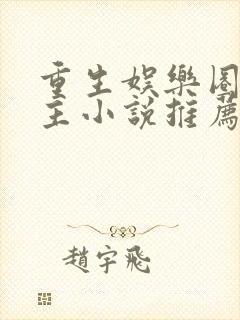 重生娛樂圈
主小說推薦
趙宇飛